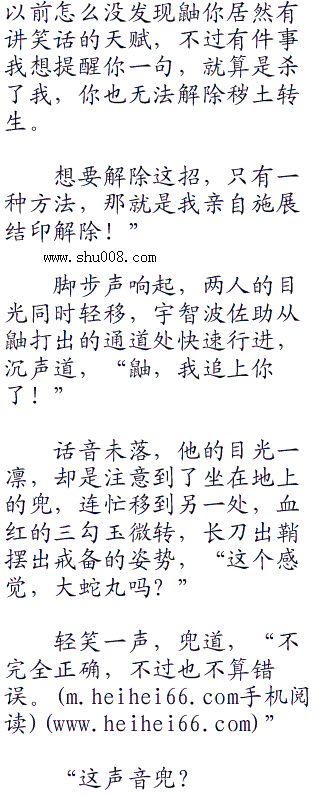 以前怎么没发现鼬你居然有
讲笑话的天赋，不过有件事
我想提醒你一句，就算是杀
了我，你也无法解除秽土转
生。
想要解除这招，只有一
种方法，那就是我亲自施展
结印解除！”
www.shu008.com
脚步声响起，两人的目
光同时轻移，宇智波佐助从
鼬打出的通道处快速行进，
沉声道，“鼬，我追上你
了！”
话音未落，他的目光一
凛，却是注意到了坐在地上
的兜，连忙移到另一处，血
红的三勾玉微转，长刀出鞘
摆出戒备的姿势，“这个感
觉，大蛇丸吗？”
轻笑一声，兜道，“不
完全正确，不过也不算错
误。(m.heihei66.com手机阅
读)(www.heihei66.com)”
“这声音兜？